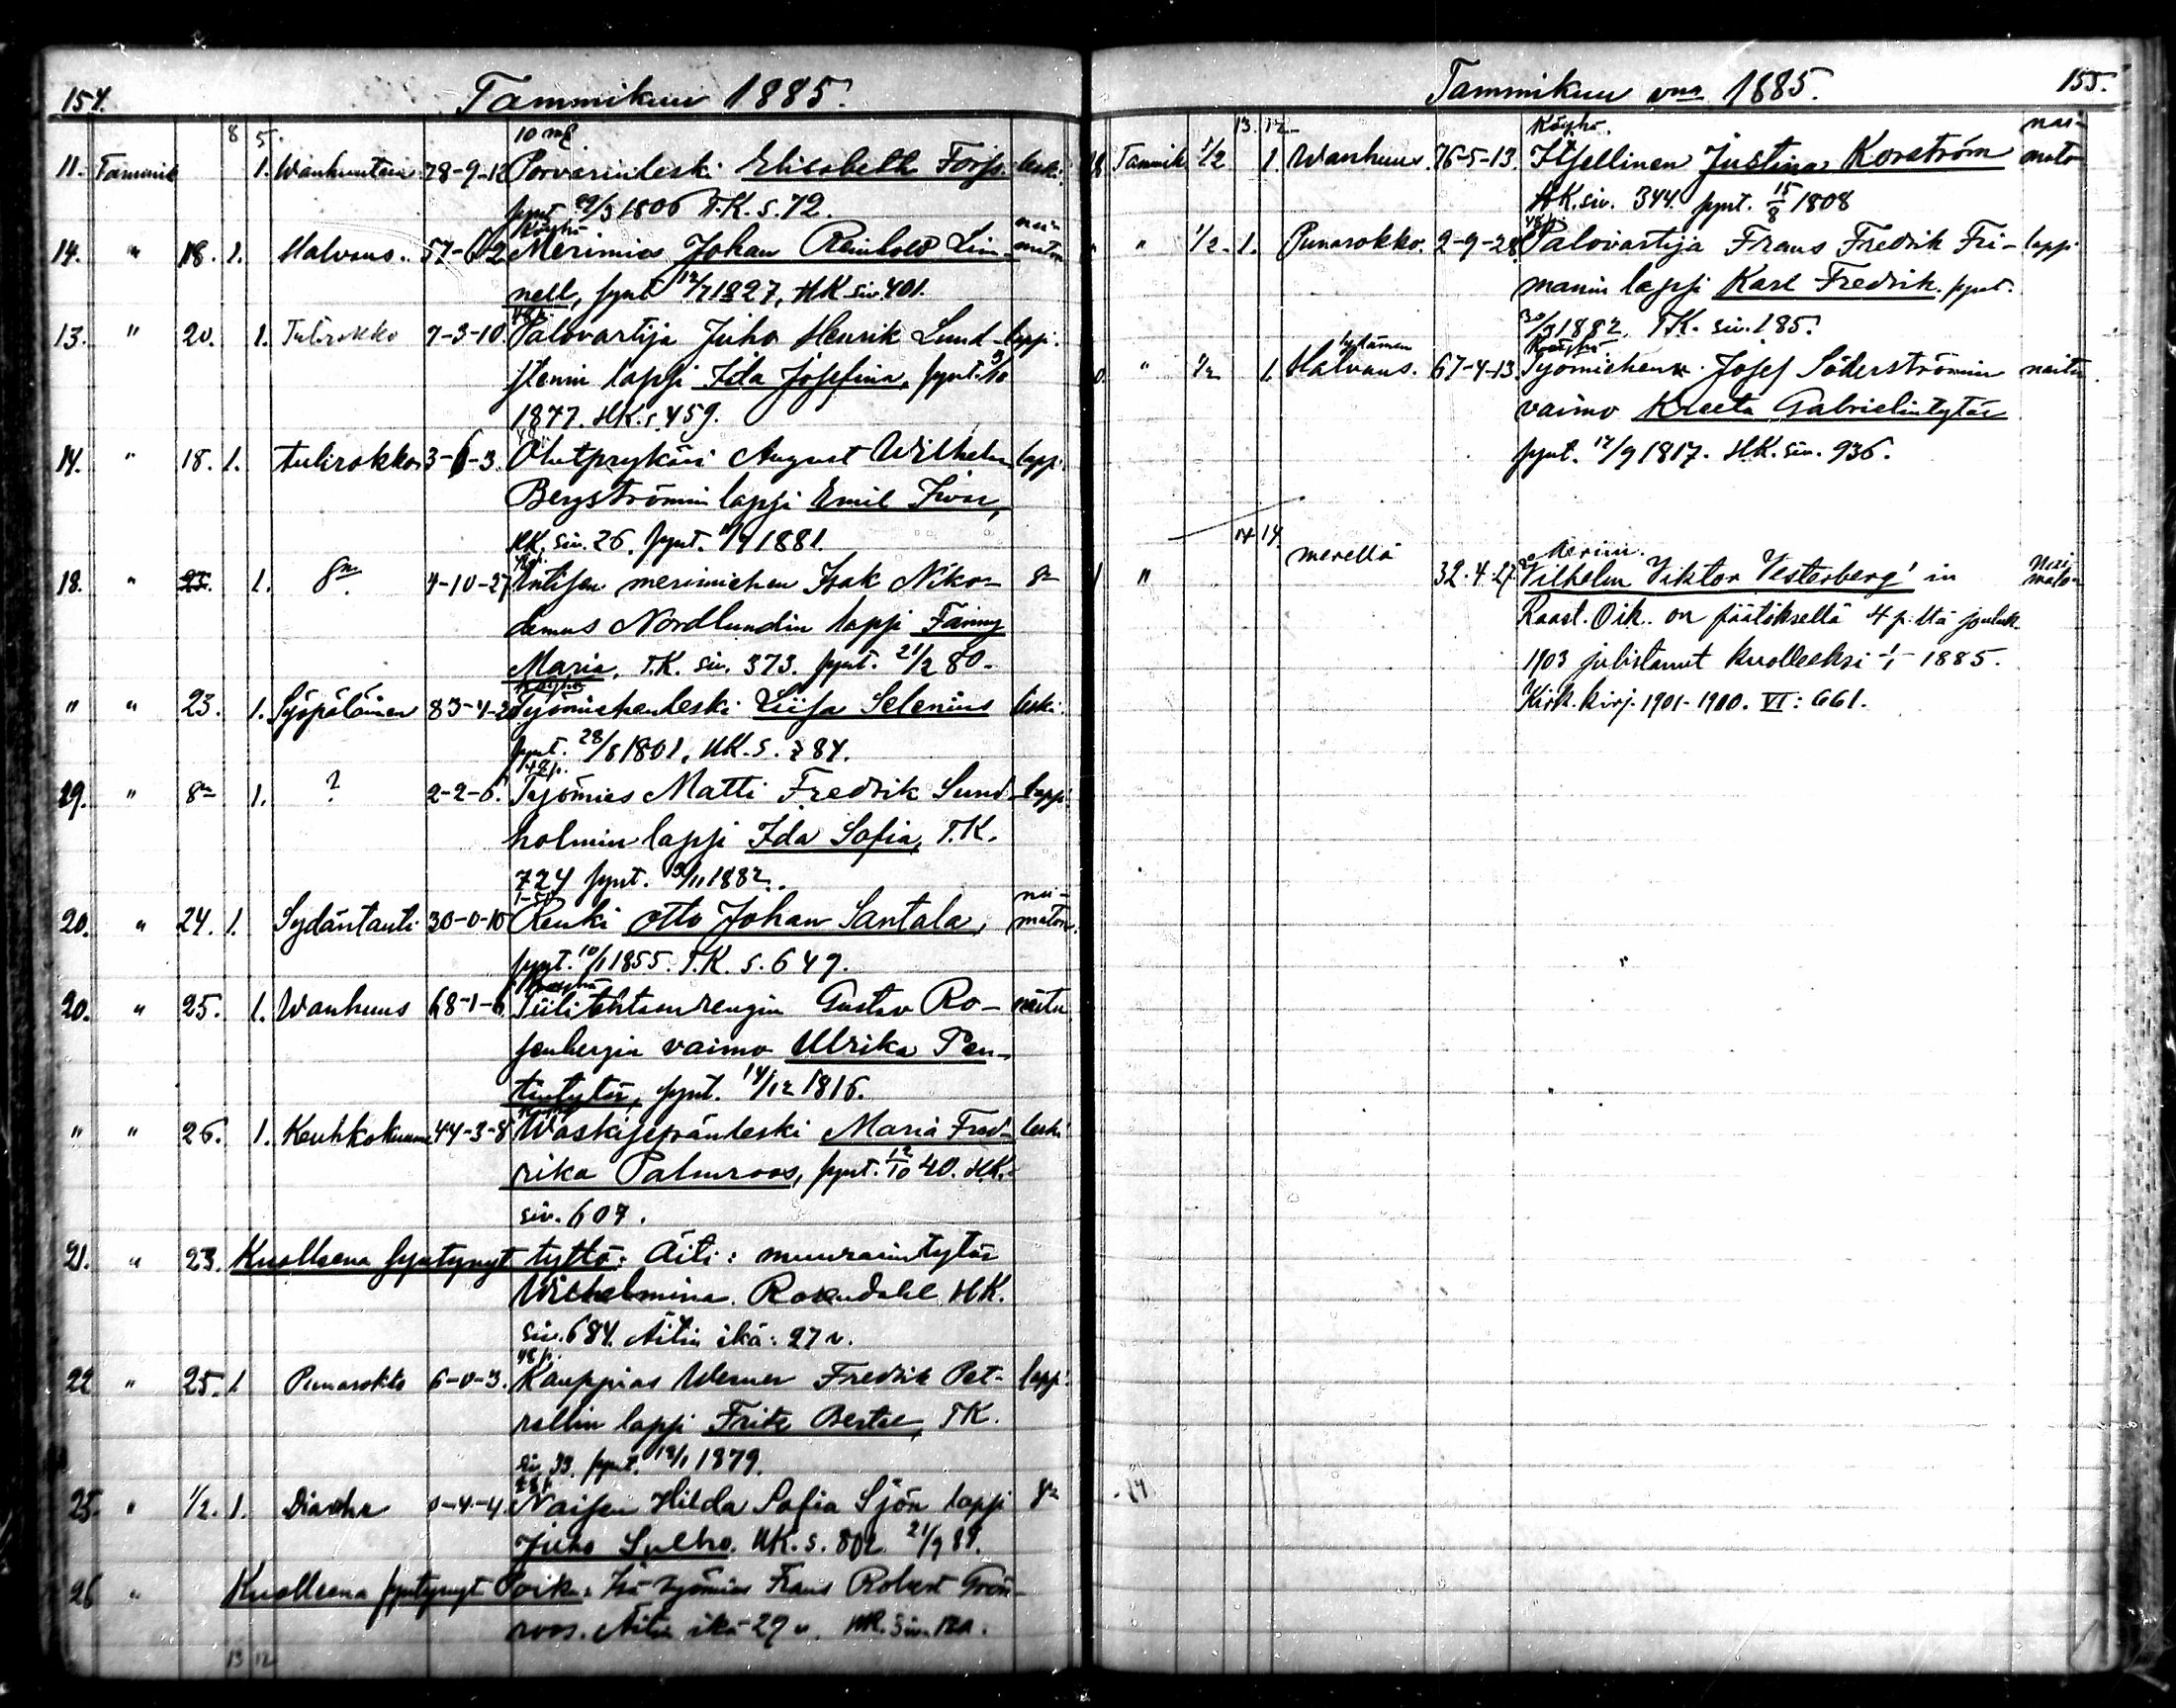 154. Tammikuu 1885.
8 5.
10 mk
11. Tammik 1. Wanhuuten 78-9-12 Porvarinleski Elisabeth Forss. leski.
synt 29/3 1806 T.K. s. 72.
Köyhä nai-
14. " 18. 1. Halvaus. 57-6-2 Merimies Johan Reinhold Lin- maton
nell, synt 12/7 1827, HK siv 401.
48 p.
13. " 20. 1. Tulirokko 7-3-10. Palovartija Juho Henrik Lund- lapsi.
stenin lapsi Ida Josefina, synt. 3/10
1877. HK. s. 459.
14. " 18. 1. tulirokko 3-6-3. Olutprykäri August Wilhelm lapsi
Bergströmin lapsi Emil Ivar,
RK. siv. 26. synt. 1881.
48 p.
18. " 23. 1. Sm. 4-10-27 Entisen merimiehen Isak Niko- Sm
demus Nordlundin lapsi Fanny
Maria, T.K. siv. 373. synt. 21/2 80.
Köyhä
" " 23. 1. Syöpäläinen 83-4-20 Työmiehenleski Liisa Selenius leski.
synt. 28/8 1801, HK. s. 784.
48 p.
19. " Sm 1. ? 2-2-6. Työmies Matti Fredrik Sund- lapsi
holmin lapsi Ida Sofia, T.K.
724 synt. /11 1882.
1-50 nai-
20. " 24. 1. Sydäntauti 30-0-10 Renki Otto Johan Santala, maton.
synt. 10/1 1855. T.K. s. 649.
Köyhä
20. " 25. 1. Wanhuus 68-1-6. Tiilitehtaanrengin Gustav Ro- naitu
senbergin vaimo Ulrika Pen-
tintytär, synt. 14/12 1816.
" " 26. 1. Keuhkokuume 44-3-8 Waskisepänleski Maria Fred- leski
rika Palmroos, synt. 12/10 40. HK.
siv. 607.
21. " 23. Kuolleena syntynyt tyttö. Äiti: muurarintytär
Wilhelmina Rosendahl HK.
siv. 684. Äitin ikä: 27 v.
48 p.
22 " 25. 1 Punarokko 6-0-3. Kauppias Werner Fredrik Pet- lapsi.
rellin lapsi Fritz Bertel, TK.
siv. 33. synt. /1 1879.
25. " 1/2. 1. Diarrhe 0-4-4. Naisen Hilda Sofia Sjön lapsi Sm
Juho Sulho. HK. s. 802 21/9 84.
26 " Kuolleena syntynyt Poika. Isä työmies Frans Robert Grön-
roos. Äitin ikä 29 v. HK. Siv.
13 12
Tammikuu vna 1885. 155.
13. 12.
Köyhä. nai-
Tammik 1/2 1. Wanhuus. 76-5-13. Itsellinen Justina Korström mato
HK. siv. 344. synt. 15/8 1808
48 p.
" 1/2. 1. Punarokko. 2-9-28 Palovartija Frans Fredrik Fri- lapsi
manin lapsi Karl Fredrik. synt.
1882. TK. siv. 185.
sydämen Köyhä
" 1/2 1. Halvaus. 67-4-13. Työmiehen Josef Söderströmin naitu
vaimo Kreeta Gabrielintytär
synt. /9 1817. HK. siv. 936.
14 14.
" merellä 32.4.27 Vilhelm Viktor Vesterberg' in Nai
maton
Raast. Oik. on päätöksellä 4 p:ltä jouluk.
1903 julistanut kuolleeksi 1/1 1885.
Kirk. kirj. 1901-1910. VI: 661.